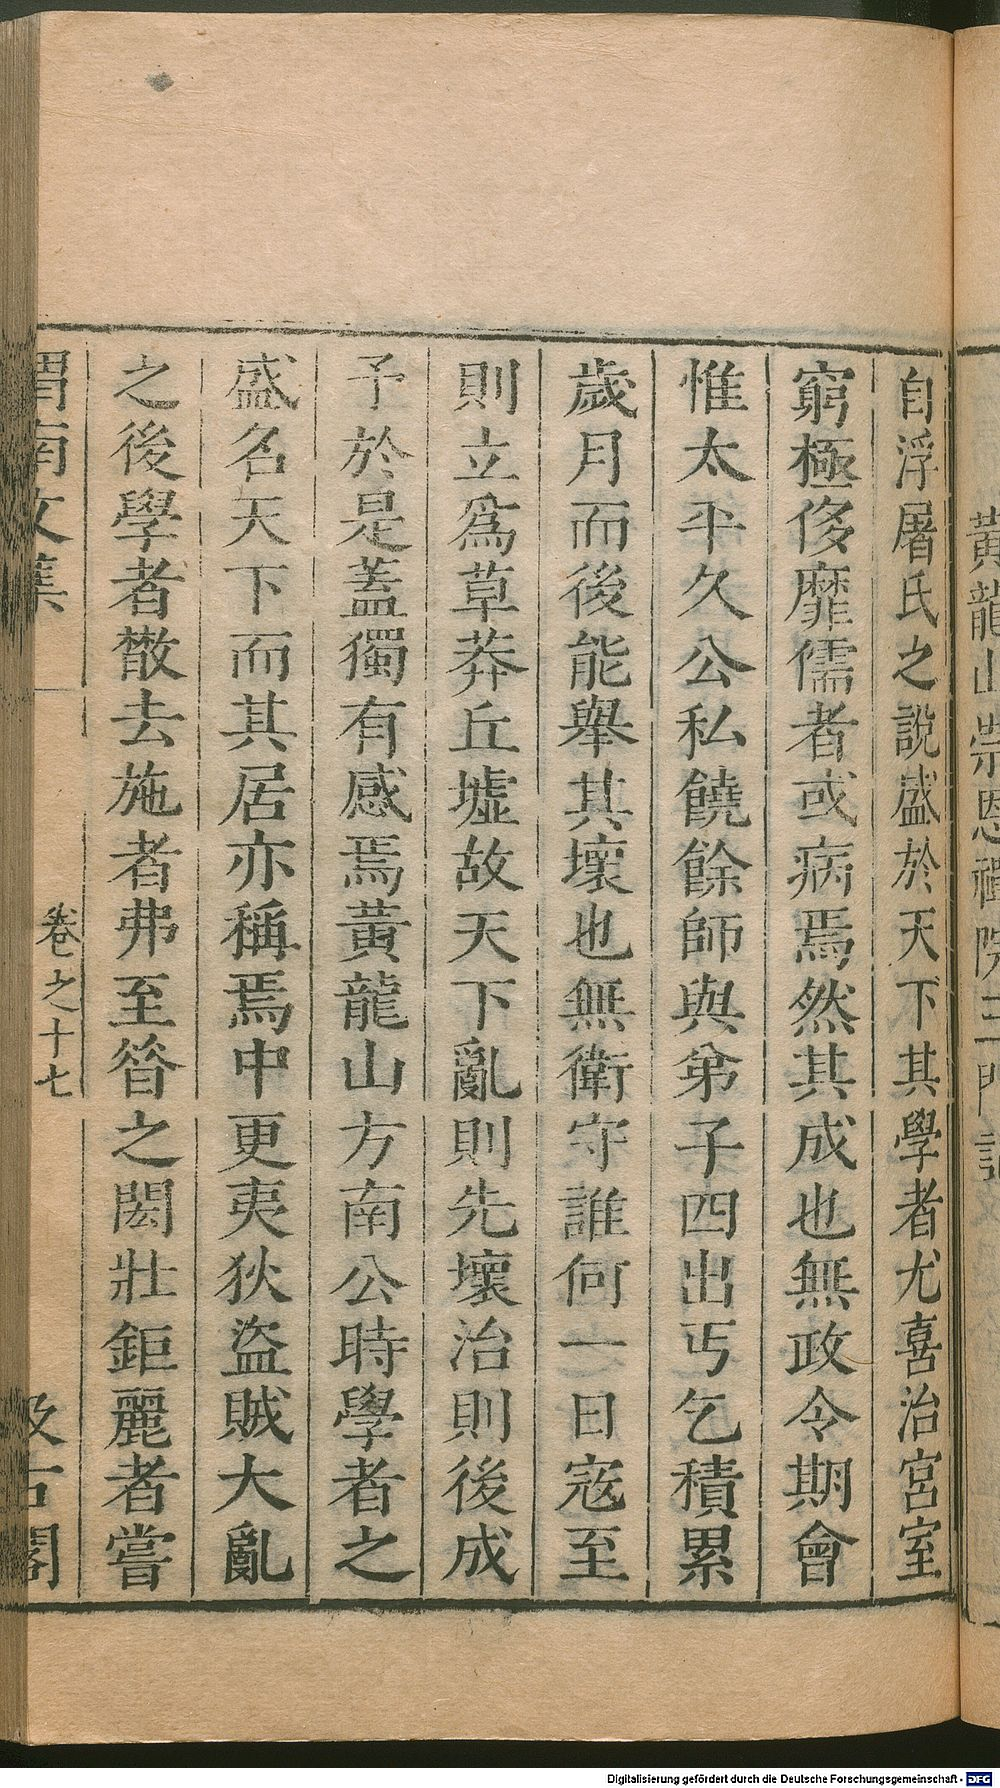 黃龍山崇恩禪院三門記
自浮屠氏之說盛於天下其學者尤喜治宮室
窮極侈靡儒者或病焉然其成也無政令期會
惟太平久公私饒餘師與弟子四出丐乞積累
歲月而後能舉其壞也無衛守誰何一日寇至
則立爲草莽丘墟故天下亂則先壞治則後成
予於是蓋獨有感焉黃龍山方南公時學者之
盛名天下而其居亦稱焉中更夷狄盜賊大亂
之後學者散去施者弗至昝之閎壯鉅麗者嘗
渭南文集 卷之十七 汲古閣
Digitalisierung gefördert durch die Deutsche Forschungsgemeinschaft - DFG